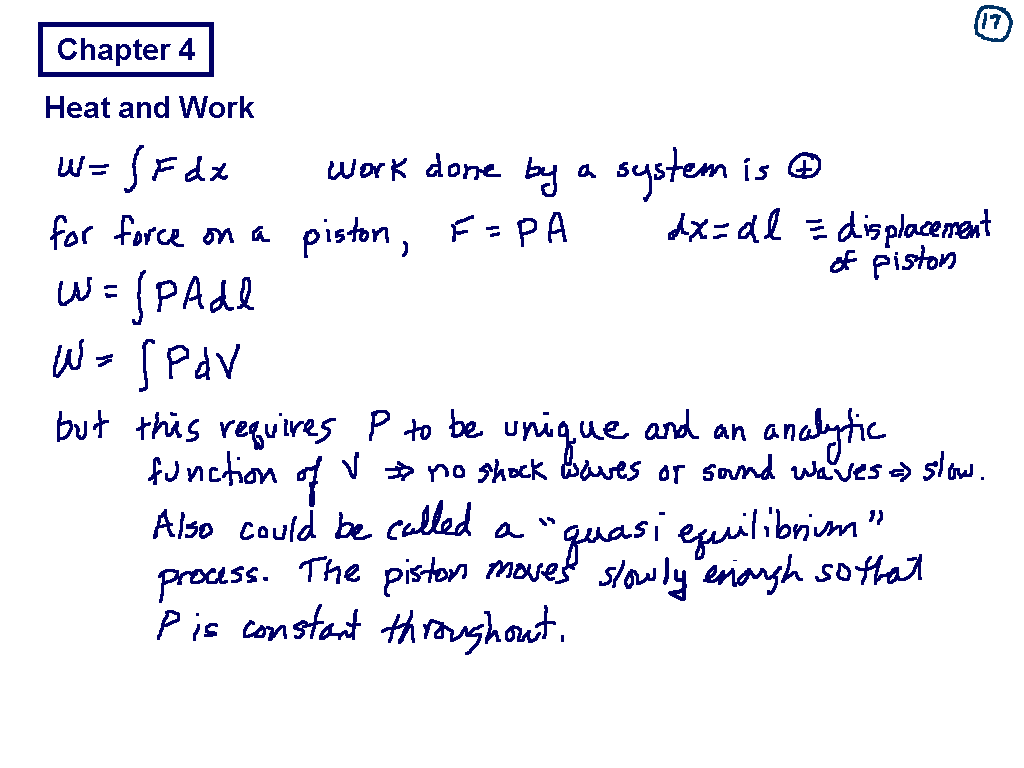 17
Chapter 4
Heat and Work
W = ∫ F dx work done by a system is ⊕
for force on a piston, F = PA dx = dl ≡ displacement
of piston
W = ∫ PAdl
W = ∫ PdV
but this requires P to be unique and an analytic
function of V ⇒ no shock waves or sound waves ⇒ slow.
Also could be called a "quasi equilibrium"
process. The piston moves slowly enough so that
P is constant throughout.